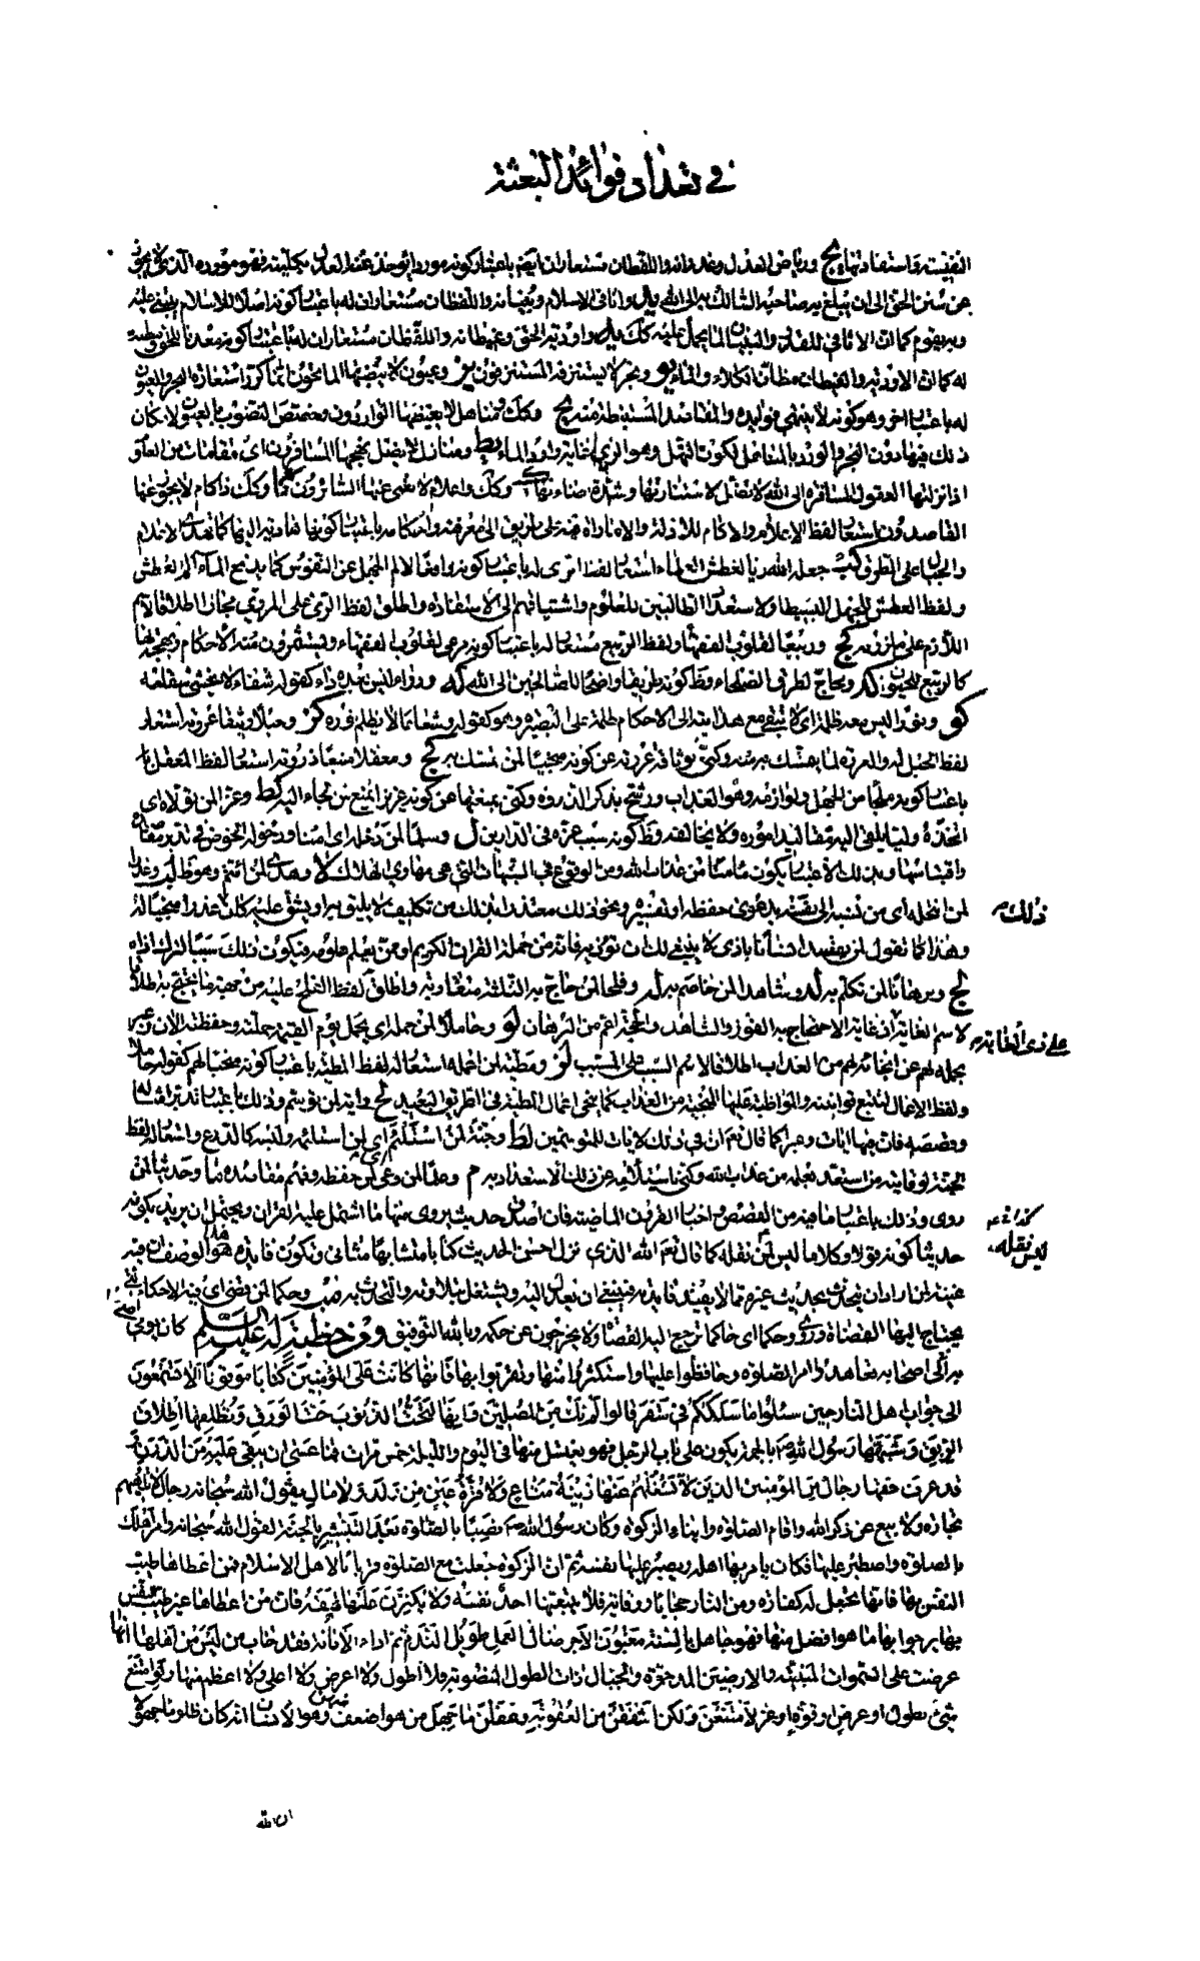 في تعداد فوائد البعثة
النفيسة واستفادتها يج ورياض العدل وغدرانه واللفظان مستعاران له ايضا باعتبار كونه موردا يؤخذ عنه العدل بكليته فهو مورده الذي لا يجور
عن سنن الحق الى ان يبلغ به صاحبه السالك به الى الله يد واثافي الاسلام وبنيانه واللفظان مستعاران له باعتبار كونه اصلا للاسلام يبتنى عليه
وبه يقوم كما ان الاثافي للقدر والبنيان لما يحمل عليه كك يه واودية الحق وغيطانه واللفظان مستعاران له باعتبار كونه معدنا للحق ومظنة
له كما ان الاودية والغيطان مظان الكلاء والماء يو وبحر لا يستنزفه المستنزفون يز وعيون لا ينضبها الماتحون انما كرر استعارة البحر والعيون
له باعتبار اخر وهو كونه لا ينتهي فوايده والمقاصد المستنبطة منه يح وكك ومناهل لا يغيضها الواردون وخصص النضوب بالعيون لامكان
ذلك فيها دون البحر والورد بالمناهل لكون النهل وهو الري غاية وارد الماء يط ومنازل لا يضل نهجها المسافرون اي مقامات من العلوم
اذا نزلتها العقول المسافرة الى الله لا تضل لاستنارتها وشدة اضاءتها ك وكك واعلام لا يعمى عنها السائرون كا وكك واكام لا يجوز عنها
القاصدون استعار لفظ الاعلام والاكام للادلة والامارات فيه على طريق الى معرفته واحكامه باعتبار كونها هادية اليها كما تهدي الاعلام
والجبال على الطرق كب جعله الله ريا لعطش العلماء استعار لفظ الري له باعتبار كونه دافعا لالم الجهل عن النفوس كما يدفع الماء الم العطش
ولفظ العطش للجهل البسيط ولاستعداد الطالبين للعلوم واشتياقهم الى الاستفادة واطلق لفظ الري على المروي مجازا اطلاقا لاسم
اللازم على ملزومه كج وربيعا لقلوب الفقهاء ولفظ الربيع مستعار له باعتبار كونه مرعى لقلوب الفقهاء ويستثمرون منه الاحكام وبهجة لها
كالربيع للحيوان كد ومحاج لطرق الصلحاء وظ كونه طريقا واضحا للصالحين الى الله كه ودواء ليس بعده داء كقوله شفاء لا يخشى سقامه
كو ونورا ليس بعد ظلمة اي لا تبقى مع هدايته الى الاحكام ظلمة على البصيرة وهو كقوله وشعاعا لا يظلم نوره كز وحبلا وثيقا عروته استعار
لفظ الحبل له والعروة لما يتمسك به منه وكنى بوثاقة عروته عن كونه منجيا لمن تمسك به كح ومعقلا منيعا ذروته استعار لفظ المعقل له
باعتبار كونه ملجأ من الجهل ولوازمه وهو العذاب ورشح بذكر الذروة وكنى بمنعها عن كونه عزيزا يمنع من لجاء اليه كط وعزا لمن تولاه اي
اتخذه وليا يلقى اليه مقاليد اموره ولا يخالفه وظ كونه سبب عزه في الدارين ل وسلما لمن دخله اي امنا ودخوله الخوض في تدبر مقاصده
واقتباسها وبذلك الاعتبار يكون مامنا من عذاب الله ومن الوقوع في الشبهات التي هي مهاوي الهلاك لا وهدى لمن ائتم به وهو ظ لب وعذرا
ذلك
لمن انتحله اي من نسبه الى نفسه بدعوى حفظه او تفسيره ونحو ذلك معتذرا بذلك من تكليف لا يليق به او يشق عليه كان عذرا منجيا له
وهذا كما تقول لمن يقصد انسانا باذى لا ينبغي لك ان تؤذيه فانه من حملة القران الكريم او ممن يعلم علومه فيكون ذلك سببا لترك اذاه
لج وبرهانا لمن تكلم به لد وشاهدا لمن خاصم به له وفلجا لمن حاج به الثلثة متقاربة واطلق لفظ الفلج عليه من جهة ما يحتج به اطلاقا
على ذي الغاية
لاسم الغاية اذ غاية الاحتجاج به الفوز والشاهد والحجة اعم من البرهان لو وحاملا لمن حمله اي يحمل يوم القيمة حملته وحفظته الان وعبر
بحمله لهم عن انجائه لهم من العذاب اطلاقا لاسم السبب على المسبب لز ومطية لمن اعمله استعار له لفظ المطية باعتبار كونه منجيا لهم كقوله حاملا
ولفظ الاعمال لتتبع قوانينه والمواظبة عليها المنجية من العذاب كما ينجي اعمال المطية في الطريق البعيد لح واية لمن توسم وذلك باعتبار تدبر امثاله
وقصصه فان فيها ايات وعبرا كما قال تعالى ان في ذلك لايات للمتوسمين لط وجنة لمن استلأم اي لمن استلأمه ولبسه كالدرع واستعار لفظ
الجنة لوقايته من استعد بعلمه من عذاب الله وكنى باستلأمه عن ذلك الاستعداد به م وعلما لمن وعى اي حفظه وفهم مقاصده ما وحديثا لمن
روى وذلك باعتبار ما فيه من القصص واخبار القرون الماضية فان اصدق حديث يروى منها ما اشتمل عليه القران ويحتمل ان يريد بكونه
ليس نقله
حديثا كونه قولا وكلاما ليس لمن نقله كما قال تعالى الله الذي نزل احسن الحديث كتابا متشابها مثاني وتكون فائدة هذا الوصف ان فيه
غنية لمن اراد ان يتحدث بحديث غيره مما لا يفيد فائدته فينبغي ان يعدل اليه ويشتغل بتلاوته والتحدث به مب وحكما لمن قضى اي فيه الاحكام التي
يحتاج اليها القضاة وروي وحكما اي حاكما ترجع اليه القضاة ولا يخرجون عن حكمه وبالله التوفيق ومن خطبة له عليه السلم كان يوصي
به اصحابه تعاهدوا امر الصلوة وحافظوا عليها واستكثروا منها وتقربوا بها فانها كانت على المؤمنين كتابا موقوتا الا تسمعون
الى جواب اهل النار حين سئلوا ما سلككم في سقر قالوا لم نك من المصلين وانها لتحت الذنوب حت الورق وتطلقها اطلاق
الربق وشبهها رسول الله ص بالحمة يكون على باب الرجل فهو يغتسل منها في اليوم والليلة خمس مرات فما عسى ان يبقى عليه من الدرن
قد عرف حقها رجال من المؤمنين الذين لا تشغلهم عنها زينة متاع ولا قرة عين من ولد ولا مال يقول الله سبحانه رجال لا تلهيهم
تجارة ولا بيع عن ذكر الله واقام الصلوة وايتاء الزكوة وكان رسول الله ص نصبا بالصلوة بعد التبشير بالجنة لقول الله سبحانه وامر اهلك
بالصلوة واصطبر عليها فكان يامر بها اهله ويصبر عليها نفسه ثم ان الزكوة جعلت مع الصلوة قربانا لاهل الاسلام فمن اعطاها طيب
النفس بها فانها تجعل له كفارة ومن النار حجابا ووقاية فلا يتبعنها احد نفسه ولا يكثرن عليها لهفه فان من اعطاها غير طيب النفس
بها يرجو بها ما هو افضل منها فهو جاهل بالسنة مغبون الاجر ضال العمل طويل الندم ثم اداء الامانة فقد خاب من ليس من اهلها انها
عرضت على السموات المبنية والارضين المدحوة والجبال ذات الطول المنصوبة فلا اطول ولا اعرض ولا اعلى ولا اعظم منها ولو امتنع
شيء بطول او عرض او قوة او عز لامتنعن ولكن اشفقن من العقوبة وعقلن ما جهل من هو اضعف منهن وهو الانسان انه كان ظلوما جهولا
ان الله